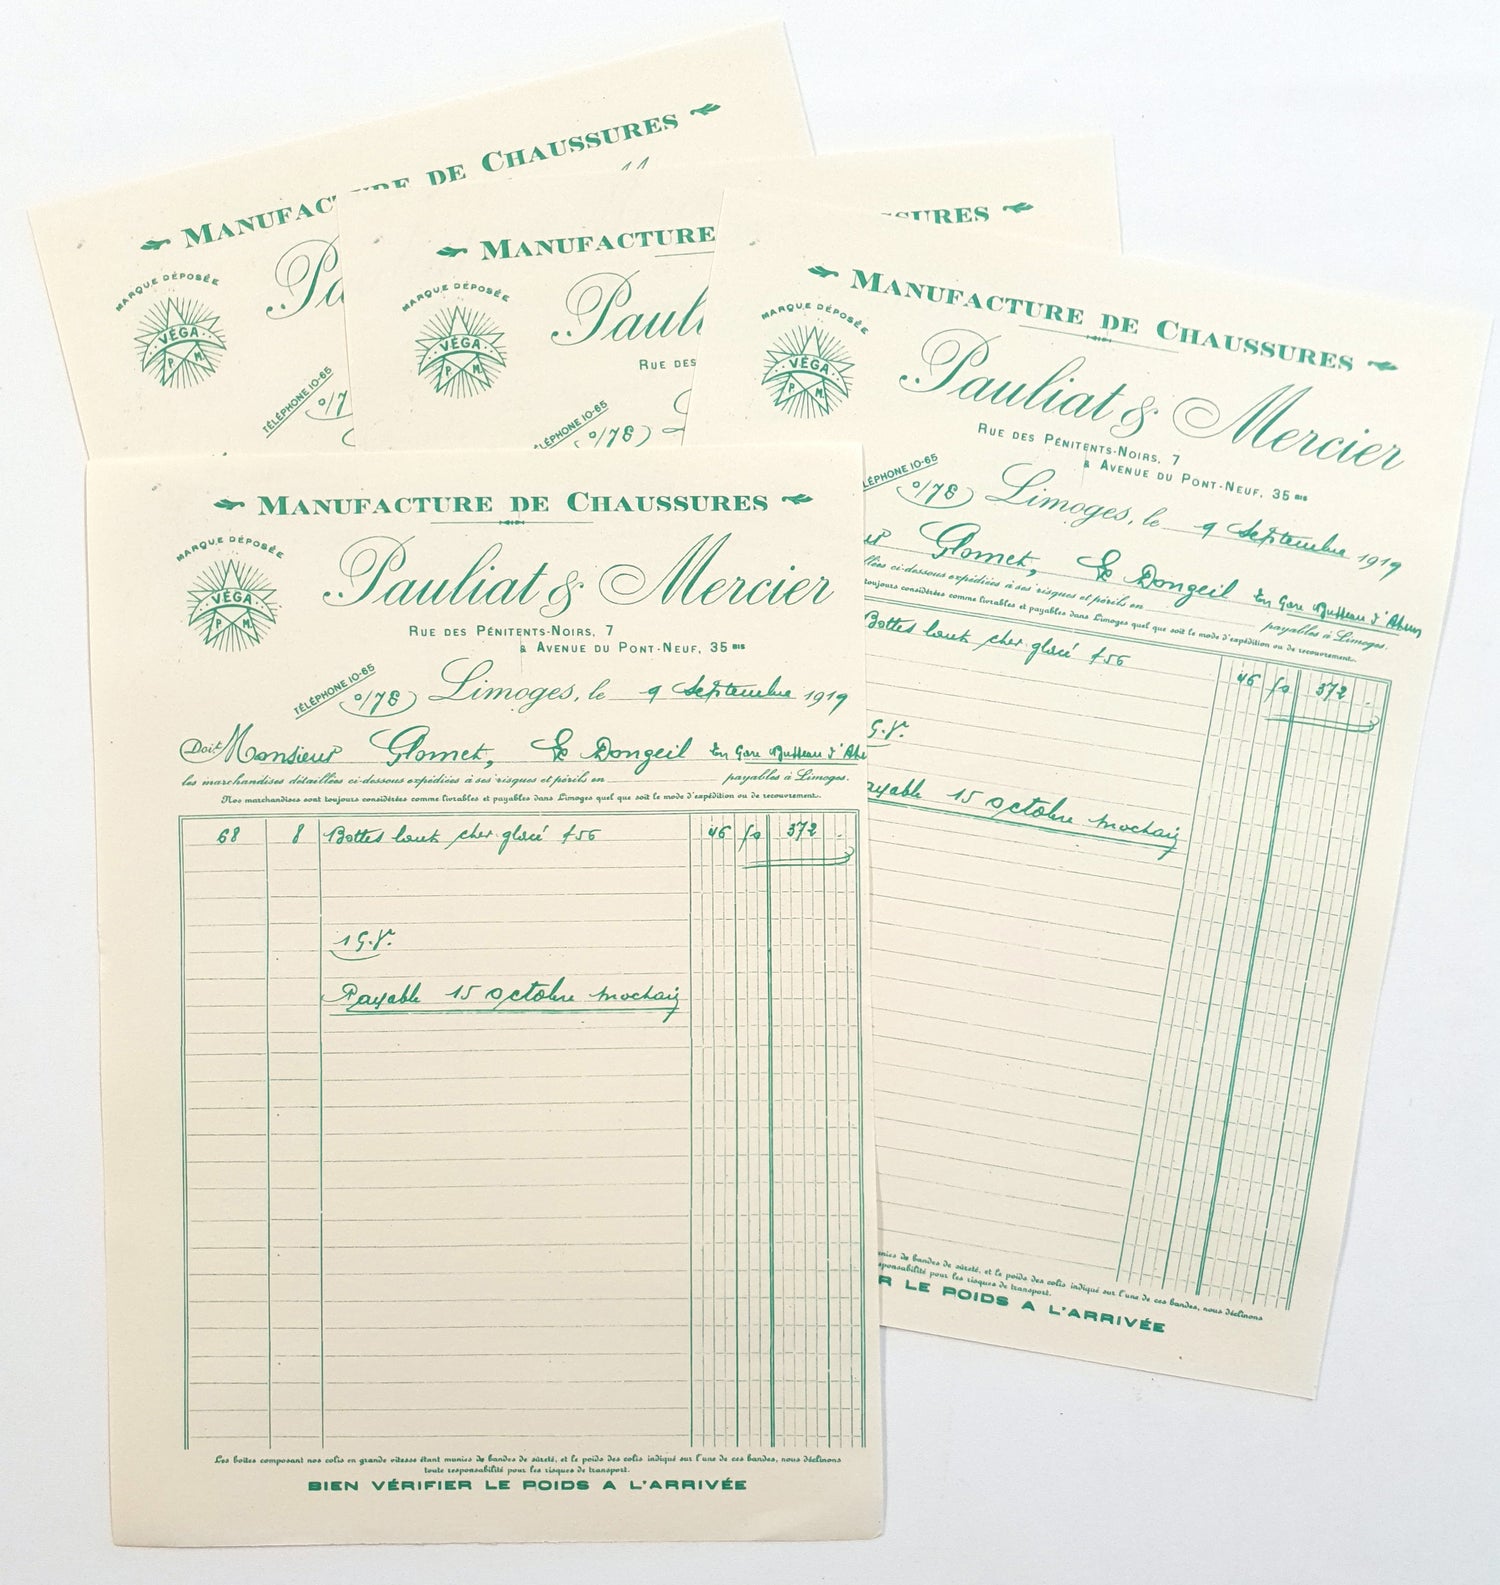 MANUFACTURE DE CHAUSSURES
MARQUE DÉPOSÉE
VÉGA
P M
Pa
TÉLÉPHONE 10-65
MANUFACTURE
MARQUE DÉPOSÉE
VÉGA
P M
Paul
RUE DES
TÉLÉPHONE 10-65
0/78
MANUFACTURE DE CHAUSSURES
MARQUE DÉPOSÉE
VÉGA
P M
Pauliat & Mercier
RUE DES PÉNITENTS-NOIRS, 7
& AVENUE DU PONT-NEUF, 35 BIS
TÉLÉPHONE 10-65
0/78
Limoges, le 9 Septembre 1919
Glomet, Dongeil En Gare Busseau d'Ahun
ci-dessous expédiées à ses risques et périls en payables à Limoges.
toujours considérées comme livrables et payables dans Limoges quel que soit le mode d'expédition ou de recouvrement.
Bottes cher. glacé 756
46 50 372
G.V.
Payable 15 octobre prochain
munies de bandes de sûreté, et le poids des colis indiqué sur l'une de ces bandes, nous déclinons
responsabilité pour les risques de transport.
R LE POIDS A L'ARRIVÉE
MANUFACTURE DE CHAUSSURES
MARQUE DÉPOSÉE
VÉGA
P M
Pauliat & Mercier
RUE DES PÉNITENTS-NOIRS, 7
& AVENUE DU PONT-NEUF, 35 BIS
TÉLÉPHONE 10-65
0/78
Limoges, le 9 Septembre 1919
Doit Monsieur Glomet, Dongeil En Gare Busseau d'Ahu
les marchandises détaillées ci-dessous expédiées à ses risques et périls en payables à Limoges.
Nos marchandises sont toujours considérées comme livrables et payables dans Limoges quel que soit le mode d'expédition ou de recouvrement.
68 8 Bottes cher. glacé 756 46 50 372
1 G.V.
Payable 15 octobre prochain
Les boîtes composant nos colis en grande vitesse étant munies de bandes de sûreté, et le poids des colis indiqué sur l'une de ces bandes, nous déclinons
toute responsabilité pour les risques de transport.
BIEN VÉRIFIER LE POIDS A L'ARRIVÉE